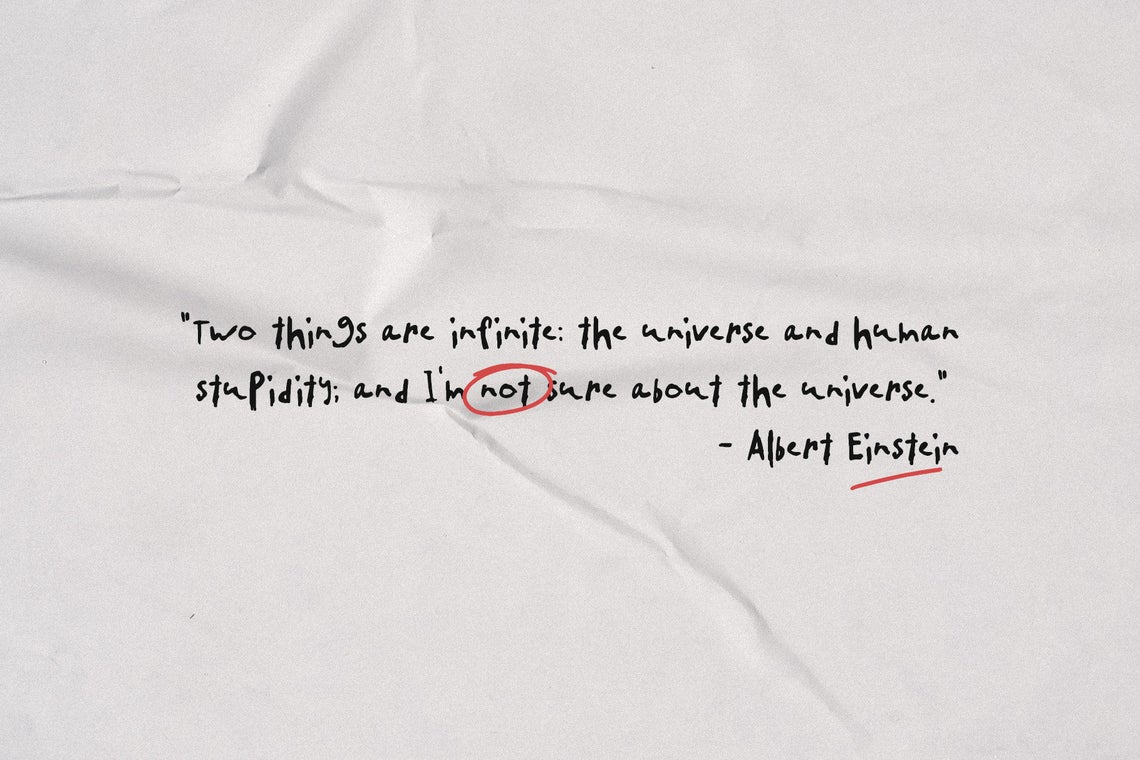 "Two things are infinite: the universe and human
stupidity; and I'm not sure about the universe."
- Albert Einstein